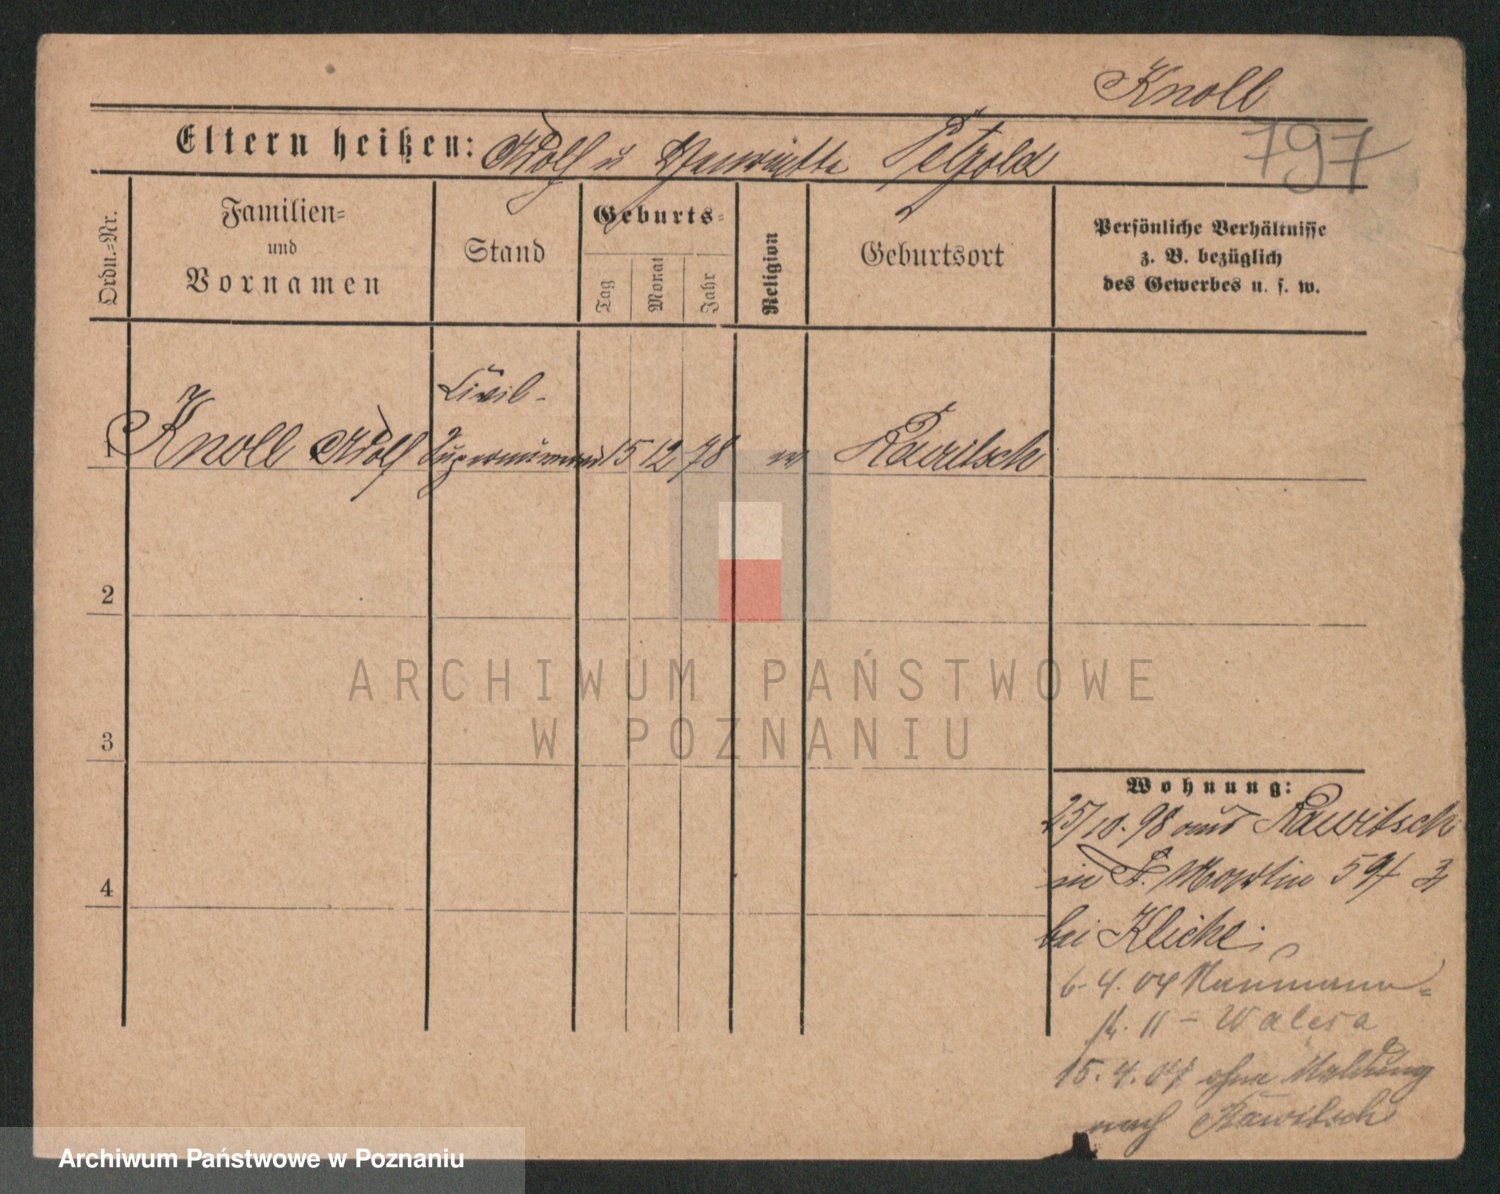 Knoll
797
Eltern heißen: Adolf u Henriette Petzold
Ordn.=Nr.
Familien=
und
Vornamen
Stand
Geburts=
Tag
Monat
Jahr
Religion
Geburtsort
Persönliche Verhältnisse
z. B. bezüglich
des Gewerbes u. s. w.
Civil-
1 Knoll Adolf Supernumerar 15 12 78 ev Rawitsch
2
3
4
ARCHIWUM PAŃSTWOWE
W POZNANIU
Wohnung:
25/10.98 aus Rawitsch
in St. Martin 59
bei Klicke
6.4.04 Naumann=
11 = Walesa
15.4.04 ohne Meldung
nach Rawitsch
Archiwum Państwowe w Poznaniu